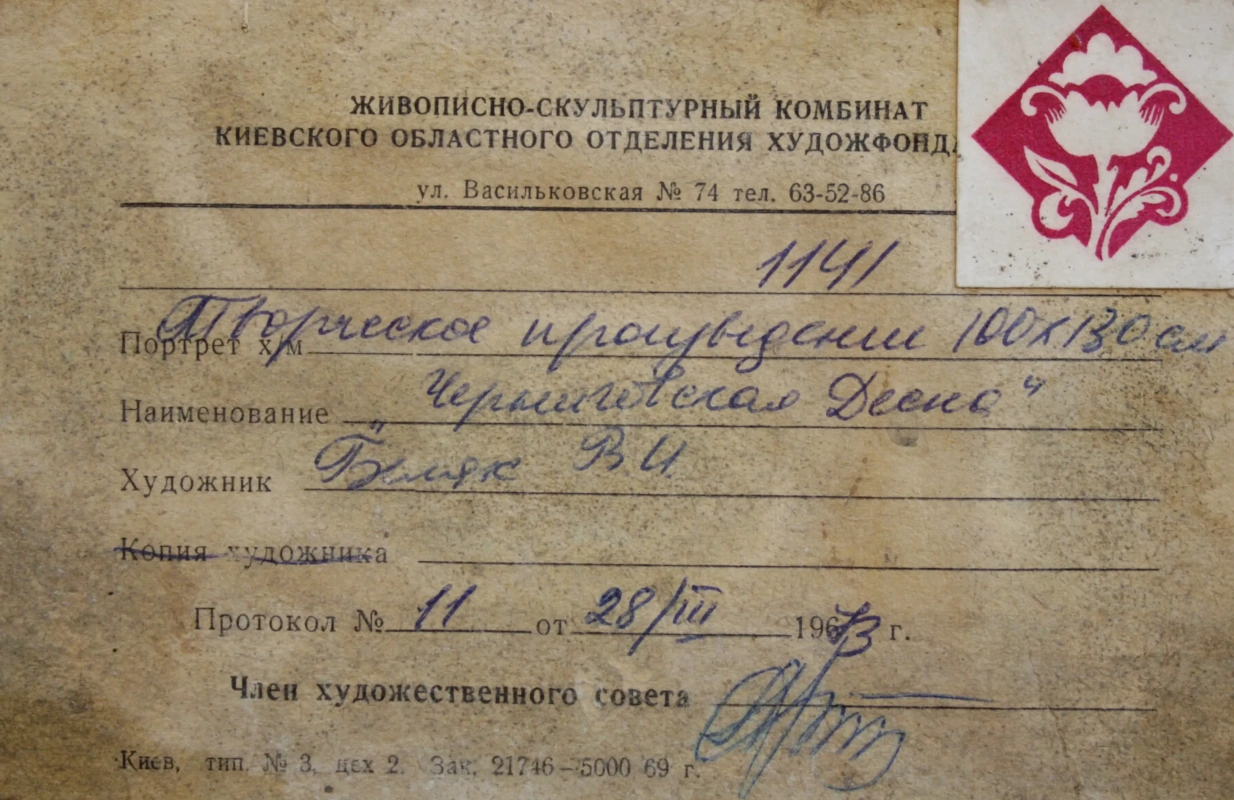 ЖИВОПИСНО-СКУЛЬПТУРНЫЙ КОМБИНАТ
КИЕВСКОГО ОБЛАСТНОГО ОТДЕЛЕНИЯ ХУДОЖФОНДА
ул. Васильковская № 74 тел. 63-52-86
1141
Портрет х/м Творческое произведение 100х130 см
Наименование „Черниговская Десна"
Художник В И
Копия художника
Протокол № 11 от 28/III 1973 г.
Член художественного совета
Киев, тип. № 3, цех 2. Зак. 21746—5000 69 г.